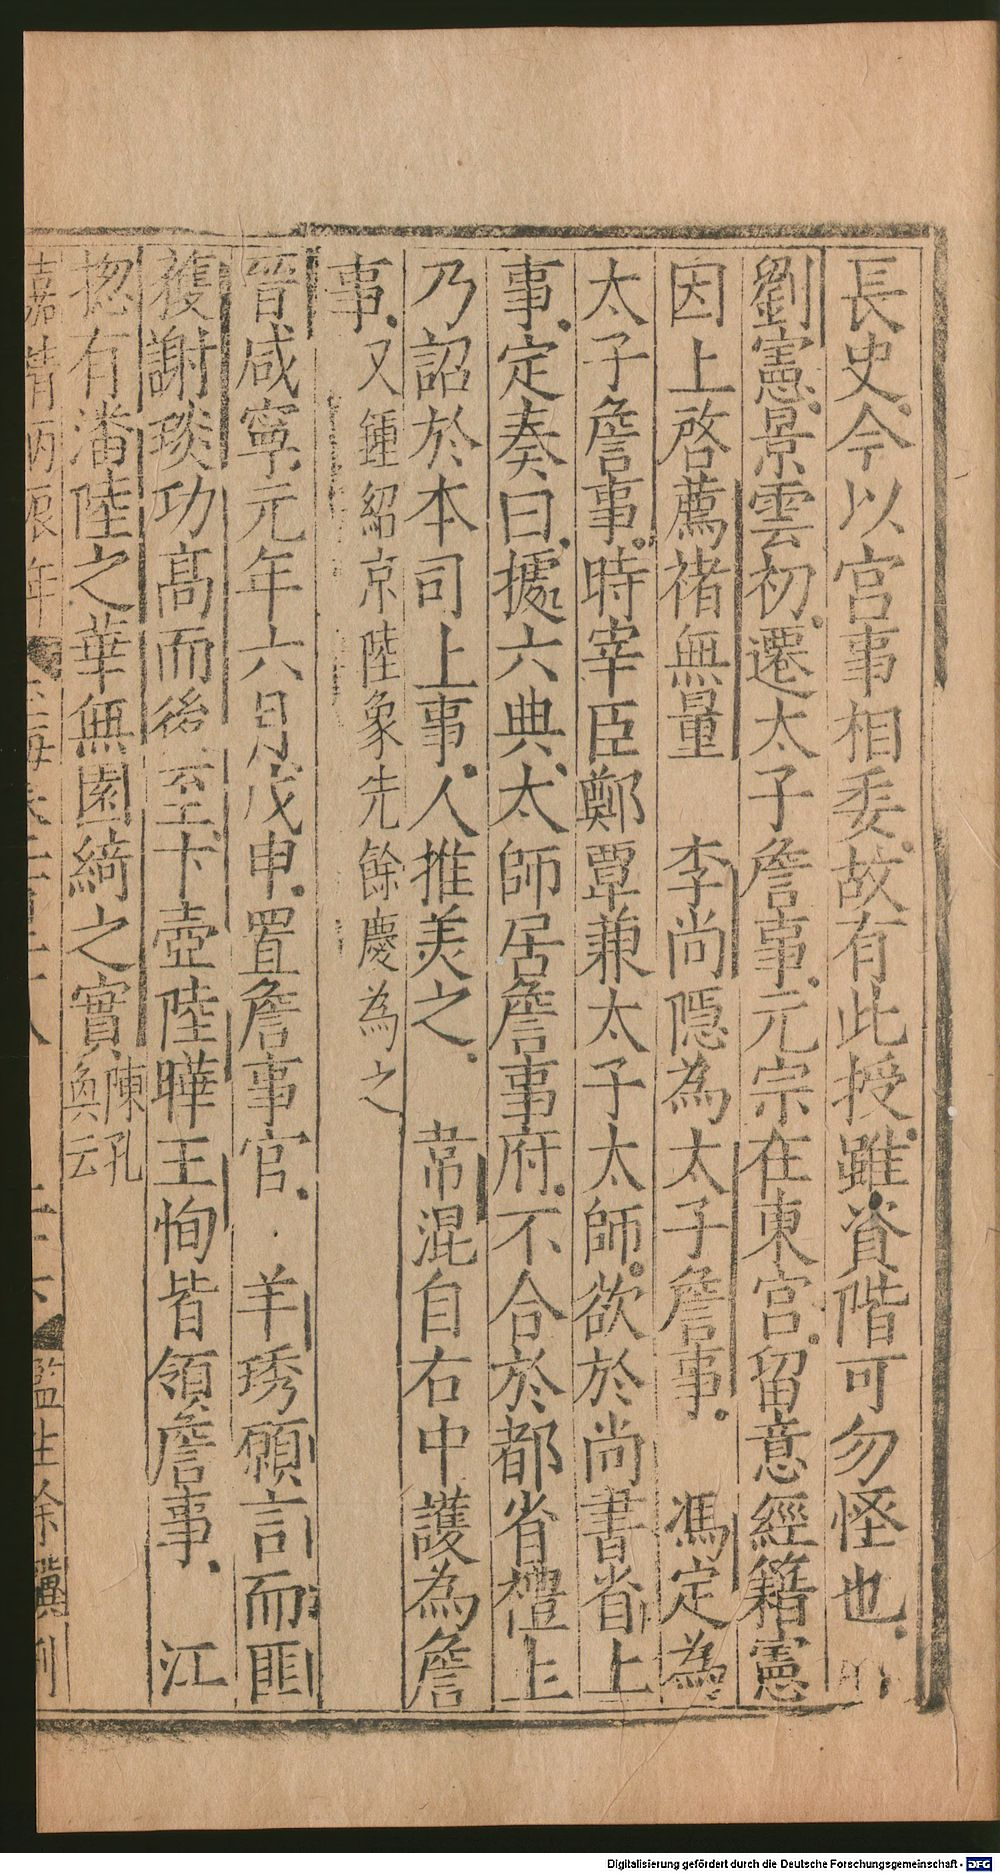 長史今以宮事相委故有此授雖資階可勿怪也
劉憲景雲初遷太子詹事元宗在東宮留意經籍憲
因上啓薦褚無量　李尚隱為太子詹事　馮定為
太子詹事時宰臣鄭覃兼太子太師欲於尚書省上
事定奏曰據六典太師居詹事府不合於都省禮上
乃詔於本司上事人推美之　常混自右中護為詹
事又鍾紹京陸象先餘慶為之
晉咸寧元年六月戊申置詹事官　羊琇願言而匪
獲謝琰功高而後至卞壺陸曄王恂皆領詹事　江
揔有潘陸之華無園綺之實陳孔奐云
嘉靖丙辰年
監生徐冀刊
Digitalisierung gefördert durch die Deutsche Forschungsgemeinschaft - DFG